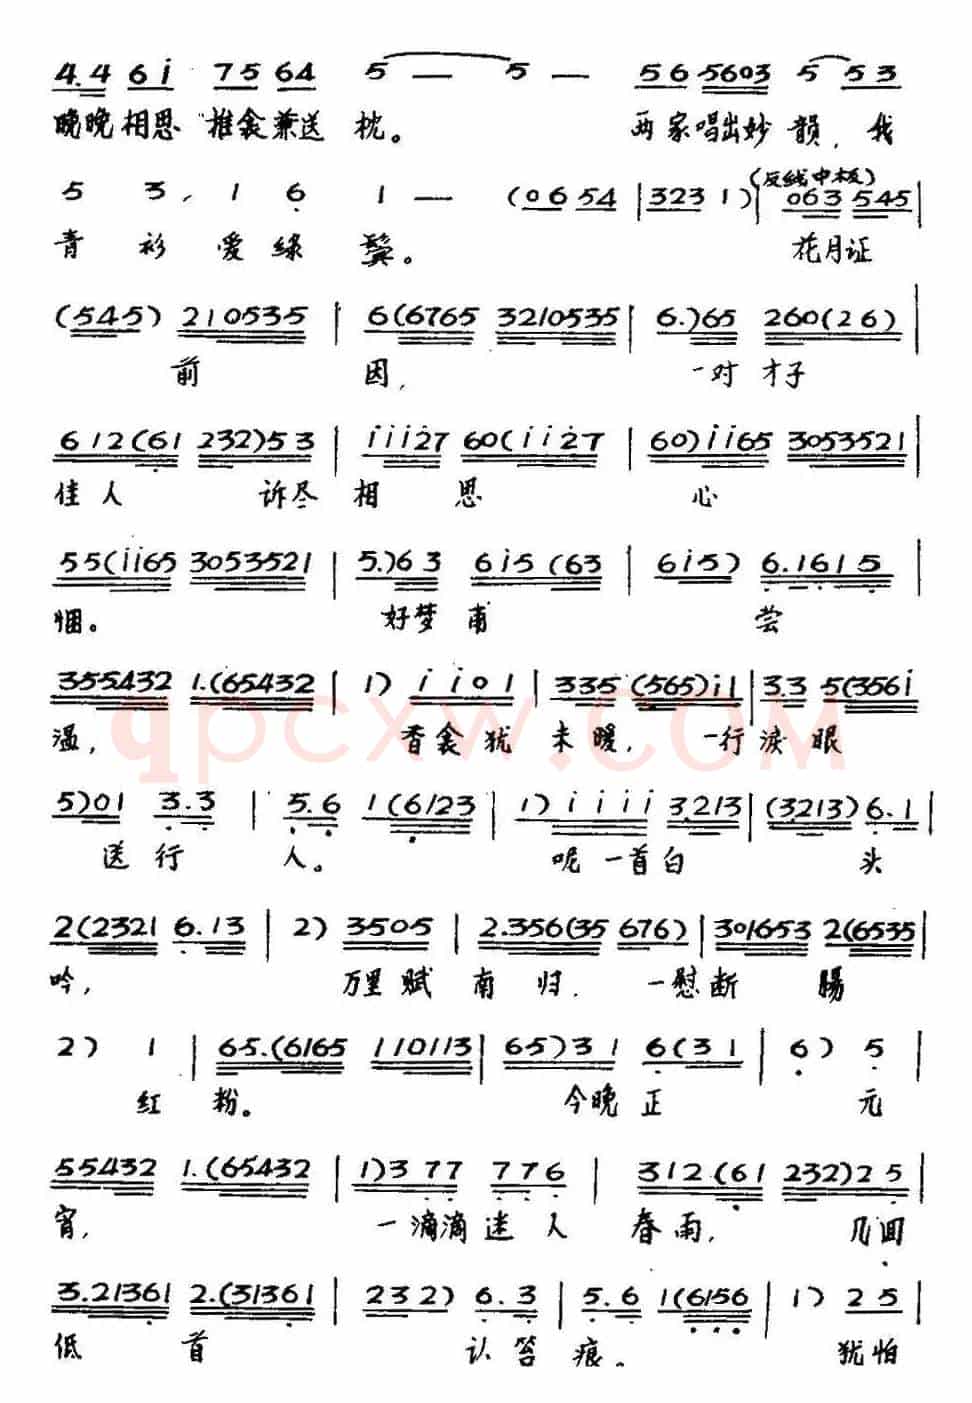 4.4 6i 75 64 5 — 5 — 56 5603 5 53
晚晚相思 推衾兼送 枕。 两家唱出妙韵，我
5 3, 1 6 1 — (06 54 | 323 1) | (反线中板) 063 545 |
青衫爱绿鬓。 花月证
(545) 210535 | 6(6765 3210535 | 6.)65 260(26) |
前 因， 一对才子
612(61 232)53 | iiii27 60(ii27 | 60)ii65 3053521 |
佳人 诉尽 相思 心
55(ii65 3053521 | 5.)63 6i5(63 | 6i5) 6.1615 |
悃。 好梦甫 尝
355432 1.(65432 | 1) ii01 | 335(565)i1 | 3.3 5(356i
温， 香衾犹未暖，一行泪眼
5)01 3.3 | 5.6 1(6123 | 1)iiii 3213 | (3213)6.1 |
送行 人。 呢一首白 头
2(2321 6.13 | 2) 3505 | 2.356(35 676) | 301653 2(6535 |
吟， 万里赋南归. 一慰断 肠
2) 1 | 65.(6165 110113 | 65)31 6(31 | 6) 5 |
红 粉。 今晚正 元
55432 1.(65432 | 1)377 776 | 312(61 232)25 |
宵， 一滴滴迷人 春雨， 几回
3.21361 2.(31361 | 232) 6.3 | 5.6 1(6156 | 1) 25
低 首 认笞 痕。 犹怕
qpcxw.com